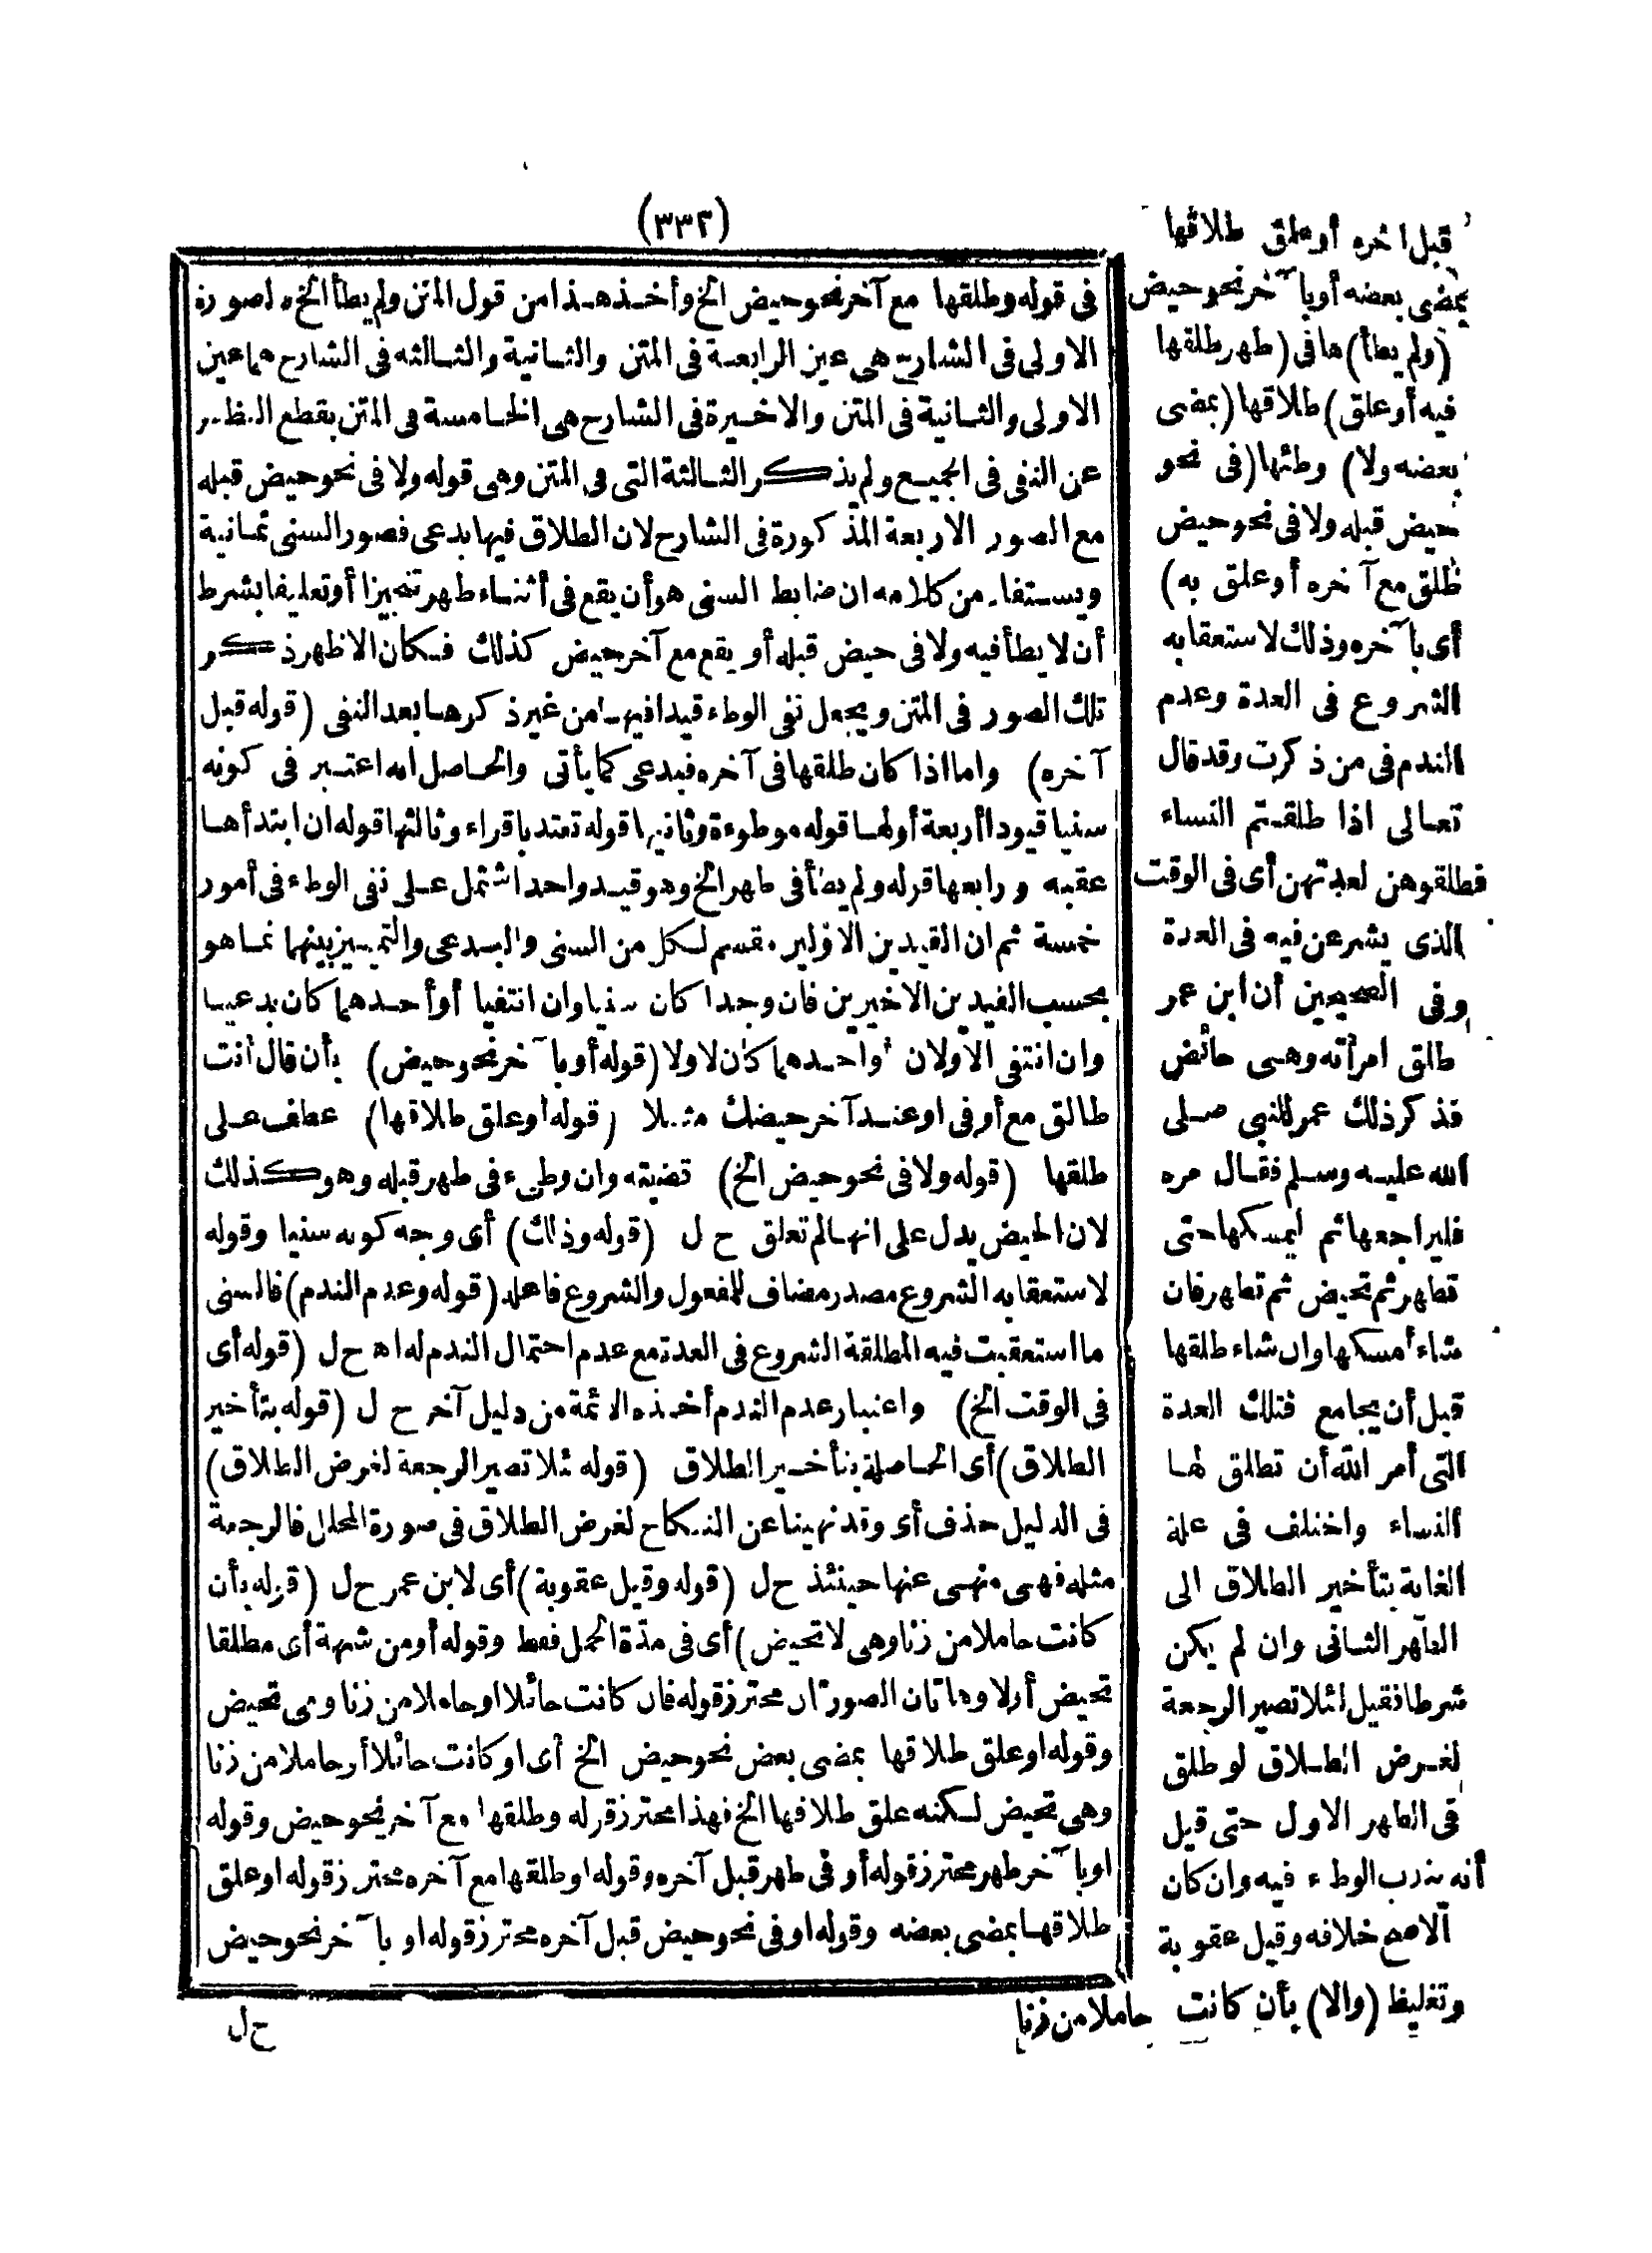 (٣٣٢)
قبل اخره أوعلق طلاقها
بمضى بعضه أوبا خرنحوحيض
(ولم يطأ) هافى (طهرطلقها
فيه أوعلق) طلاقها (بمضى
بعضه ولا) وطئها (فى نحو
حيض قبله ولافى نحوحيض
طلق مع آخره أوعلق به)
أى بآ خره وذلك لاستعقابه
الشروع فى العدة وعدم
الندم فى من ذكرت وقد قال
تعالى اذا طلقتم النساء
فطلقوهن لعدتهن أى فى الوقت
الذى يشرعن فيه فى العدة
وفى الصحيحين أن ابن عمر
طلق امرأته وهى حائض
فذكر ذلك عمر للنبى صلى
الله عليه وسلم فقال مره
فليراجعها ثم ليمسكها حتى
تطهر ثم تحيض ثم تطهر فان
شاء أمسكها وان شاء طلقها
قبل أن يجامع فتلك العدة
التى أمر الله أن تطلق لها
النساء واختلف فى علة
الغاية بتأخير الطلاق الى
الطهر الثانى وان لم يكن
شرطا فقيل لئلا تصير الرجعة
لغرض الطلاق لو طلق
فى الطهر الاول حتى قيل
أنه يندب الوطء فيه وان كان
الاصح خلافه وقيل عقوبة
وتغليظ (والا) بأن كانت حاملا من زنا
فى قوله وطلقها مع آخرنحوحيض الخ وأخذ هذا من قول المتن ولم يطأ الخ الصورة
الاولى فى الشارح هى عين الرابعة فى المتن والثانية والثالثه فى الشارح هما عين
الاولى والثانية فى المتن والاخيرة فى الشارح هى الخامسة فى المتن بقطع النظر
عن النفى فى الجميع ولم يذكر الثالثة التى فى المتن وهى قوله ولا فى نحوحيض قبله
مع الصور الاربعة المذكورة فى الشارح لان الطلاق فيها بدعى فصور السنى ثمانية
ويستفاد من كلامه ان ضابط السنى هو أن يقع فى أثناء طهر تنجيزا أو تعليقا بشرط
أن لا يطأ فيه ولا فى حيض قبله أو يقع مع آخر حيض كذلك فكان الاظهر ذكر
تلك الصور فى المتن ويجعل نفى الوطء قيدا فيها من غير ذكرها بعد النفى (قوله قبل
آخره) واما اذا كان طلقها فى آخره فبدعى كما يأتى والحاصل انه اعتبر فى كونه
سنيا قيودا أربعة أولها قوله موطوءة وثانيها قوله تعتد باقراء وثالثها قوله ان ابتدأها
عقبه ورابعها قوله ولم يطأ فى طهر الخ وهو قيد واحد اشتمل على نفى الوطء فى أمور
خمسة ثم ان القيدين الاولين مقسم لكل من السنى والبدعى والتمييز بينهما نما هو
بحسب القيدين الاخيرين فان وجدا كان سنيا وان انتفيا أو أحدهما كان بدعيا
وان انتفى الاولان أو احدهما كان لا ولا (قوله أو بآ خر نحوحيض) بأن قال أنت
طالق مع أو فى او عند آخر حيضك مثلا (قوله أو علق طلاقها) عطف على
طلقها (قوله ولا فى نحوحيض الخ) قضيته وان وطىء فى طهر قبله وهو كذلك
لان الحيض يدل على انها لم تعلق ح ل (قوله وذلك) أى وجه كونه سنيا وقوله
لاستعقابه الشروع مصدر مضاف للمفعول والشروع فاعله (قوله وعدم الندم) فالسنى
ما استعقبت فيه المطلقة الشروع فى العدة مع عدم احتمال الندم له اه ح ل (قوله أى
فى الوقت الخ) واعتبار عدم الندم أخذه الائمة من دليل آخر ح ل (قوله بتأخير
الطلاق) أى الحاصلة بتأخير الطلاق (قوله ئلا تصير الرجعة لغرض الطلاق)
فى الدليل حذف أى وقد نهينا عن النكاح لغرض الطلاق فى صورة المحلل فالرجعة
مثله فهى منهى عنها حينئذ ح ل (قوله وقيل عقوبة) أى لابن عمر ح ل (قوله بأن
كانت حاملا من زنا وهى لا تحيض) أى فى مدة الحمل فقط وقوله أو من شبهة أى مطلقا
تحيض أولا وهاتان الصورتان محترز قوله فان كانت حائلا او حاملا من زنا وهى تحيض
وقوله اوعلق طلاقها بمضى بعض نحوحيض الخ أى او كانت حائلا أو حاملا من زنا
وهى تحيض لكنه علق طلاقها الخ فهذا محترز قوله وطلقها مع آخر نحوحيض وقوله
او بآ خر طهر محترز قوله أو فى طهر قبل آخره وقوله او طلقها مع آخره محترز قوله اوعلق
طلاقها بمضى بعضه وقوله او فى نحوحيض قبل آخره محترز قوله او بآ خر نحوحيض
ح ل